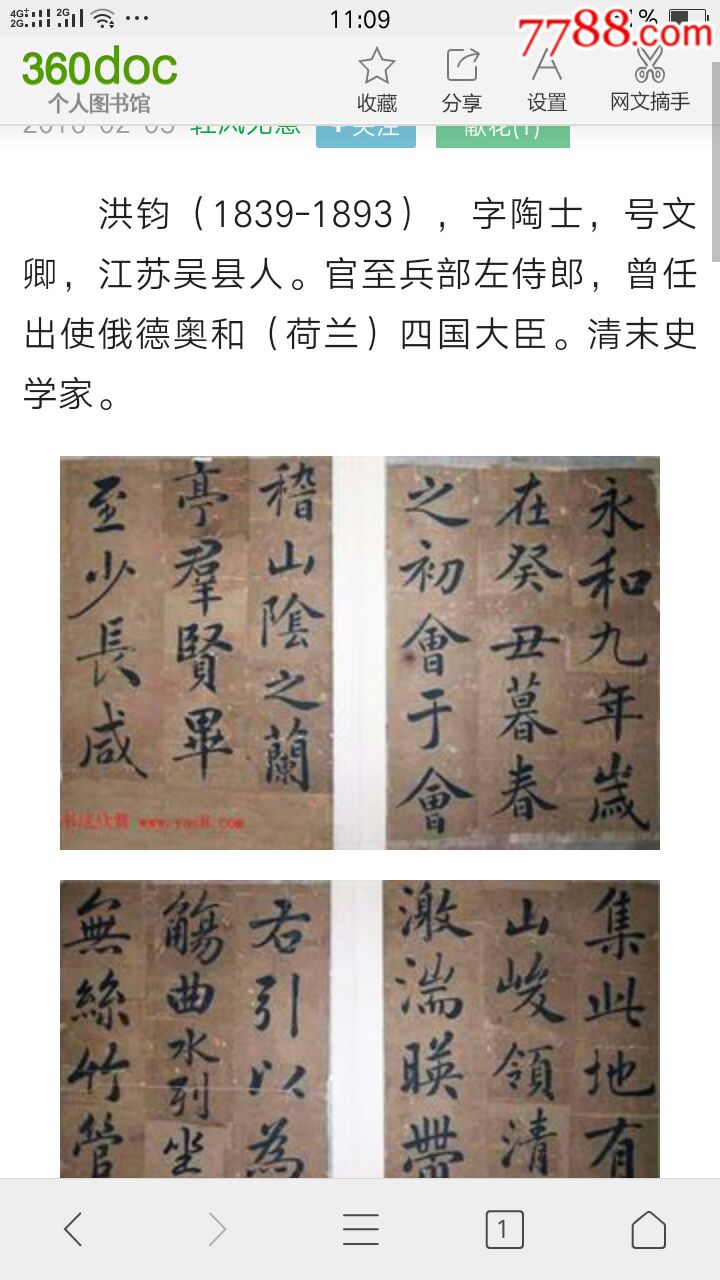 11:09
7788.com
360doc
个人图书馆
收藏
分享
设置
网文摘手
洪钧（1839-1893），字陶士，号文
卿，江苏吴县人。官至兵部左侍郎，曾任
出使俄德奥和（荷兰）四国大臣。清末史
学家。
永和九年歲
在癸丑暮春
之初會于會
稽山陰之蘭
亭羣賢畢
至少長咸
集此地有
山峻領清
激湍暎帶
右引以為
觴曲水列坐
無絲竹管
1